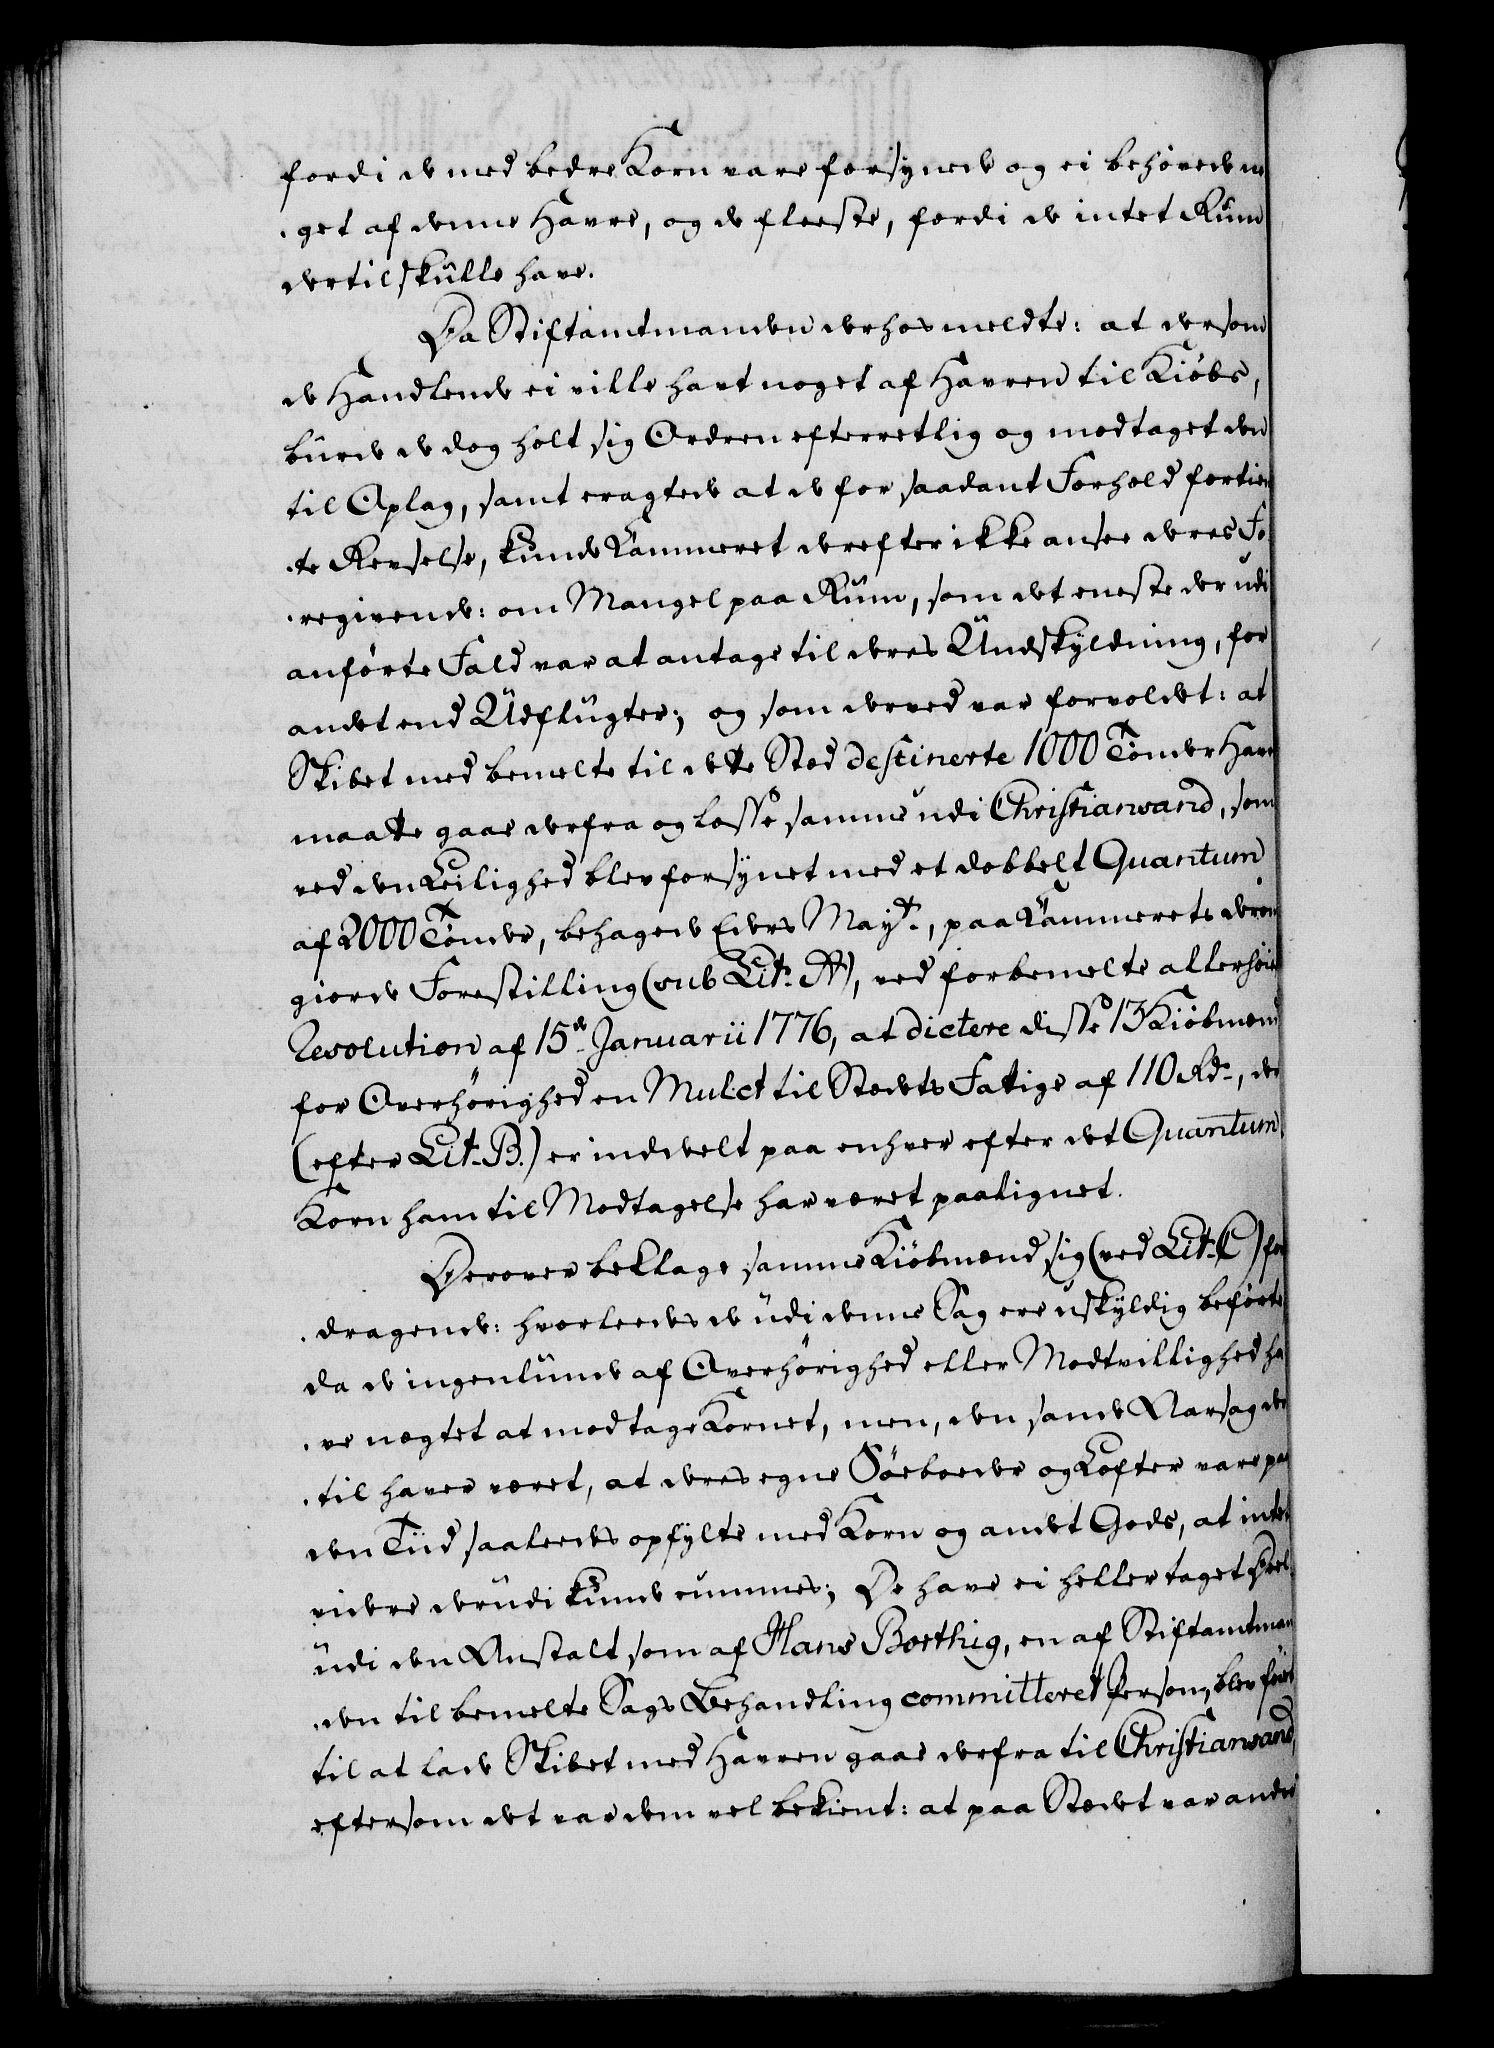 fordi de med bedre Korn vare forsynede og ei behøvede no
get af denne Havre, og de fleeste, fordi de intet Rum
dertil skulle have.
Da Stiftamtmanden derhos meldte: at dersom
de Handlende ei ville havt noget af Havren til Kiøbs,
burde de dog holt sig Ordren efterretlig og modtaget den
til Oplag, samt eragtede at de for saadant Forhold fortien
te Revselse, kunde Kammeret derefter ikke ansee deres Fo
regivende: om Mangel paa Rum, som det eneste der udi
anførte Fald var at antage til deres Undskyldning, for
andet end Udflugter; og som derved var forvoldet: at
Skibet med bemelte til dette Sted destinerte 1000 Tønder Havre
maatte gaae derfra og losse samme udi Christiansand, som
ved den Leilighed blev forsynet med et dobbelt Quantum
af 2000 Tønder, behagede Eders Mayt., paa Kammerets derom
giorde Forestilling (sub Lit. A), ved forbemelte allerhøie
Resolution af 15de Januarii 1776, at dictere disse 13 Kiøbmænd
for Overhørighed en Mulct til Stedets Fattige af 110 Rd., der
(efter Lit. B.) er inddeelt paa enhver efter det Quantum
Korn ham til Modtagelse har været paalignet.
Derover beklage samme Kiøbmænd sig (ved Lit. C) for
dragende: hvorledes de udi denne Sag ere uskyldig beførte
da de ingenlunde af Overhørighed eller Modtvillighed ha
ve nægtet at modtage Kornet, men, den sande Aarsag der
til haver været, at deres egne Søeboeder og Lofter vare paa
den Tiid saaledes opfylte med Korn og andet Gods, at intet
videre derudi kunde rummes; De have ei heller taget Deel
udi den Anstalt som af Hans Borthig, en af Stiftamtman
den til bemelte Sags Behandling committeret Person, blev føiet
til at lade Skibet med Havren gaae derfra til Christiansand,
eftersom det var dem vel bekient: at paa Stedet var andre